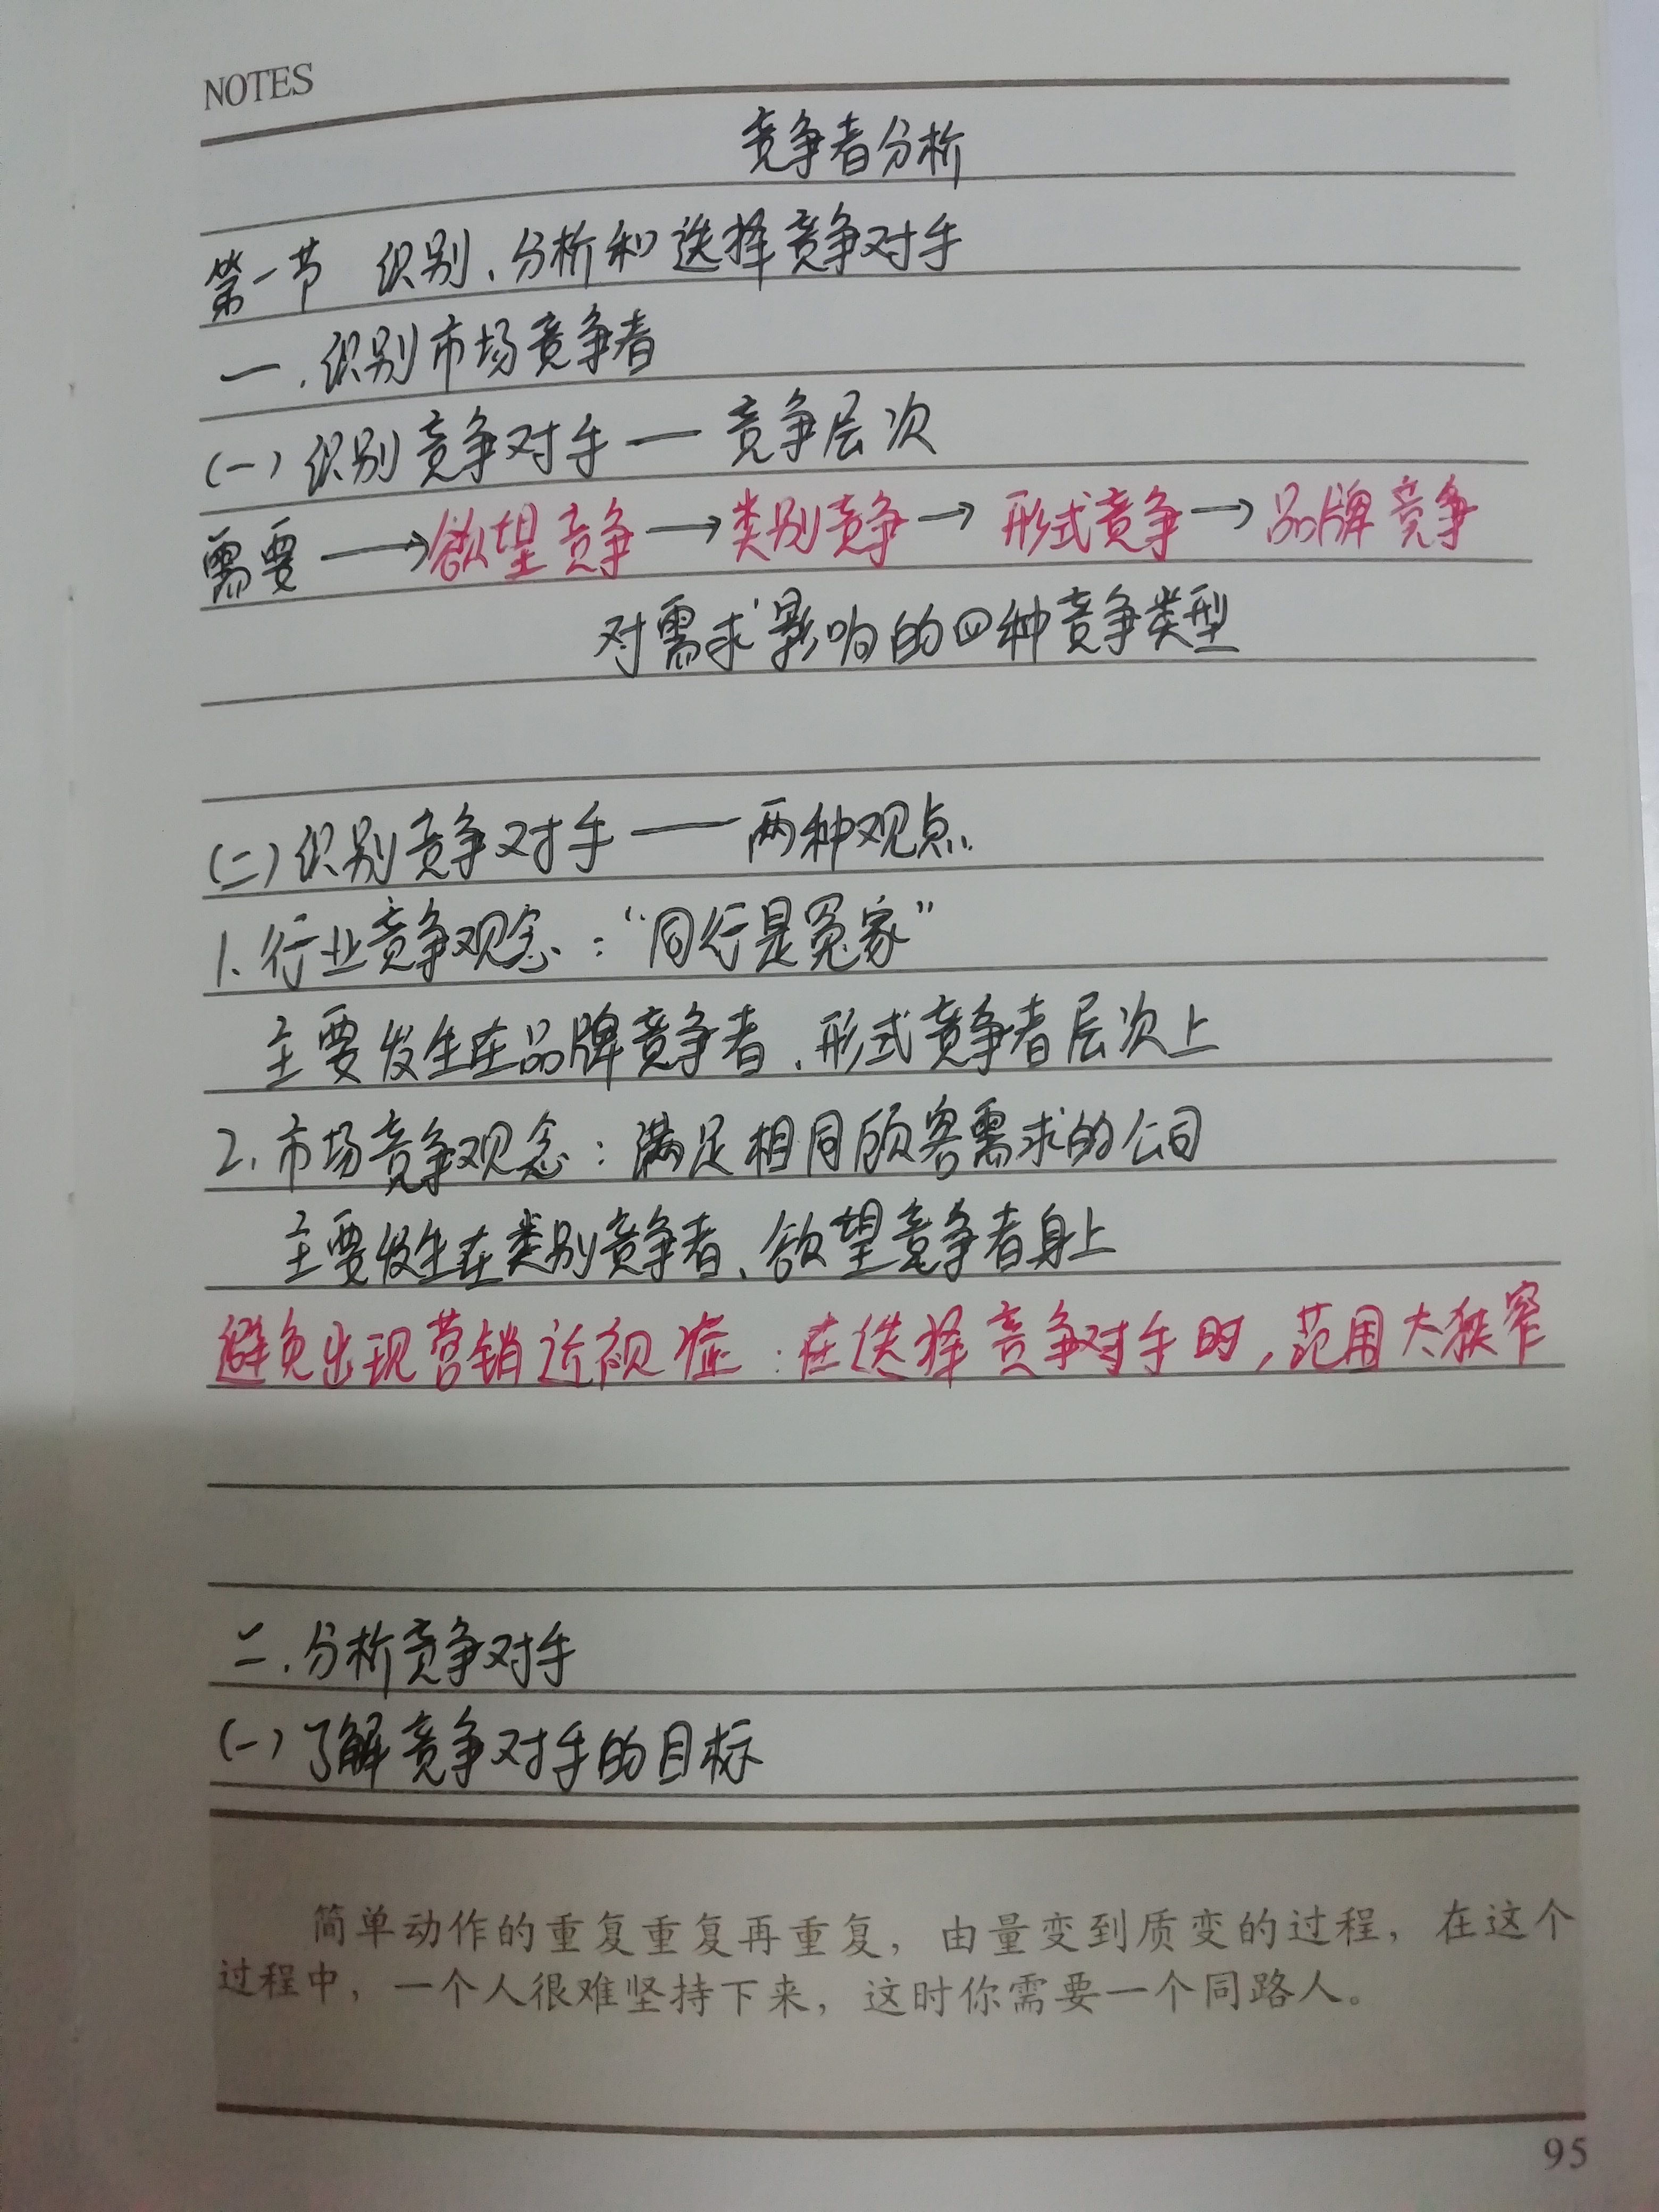 NOTES
竞争者分析
第一节 识别、分析和选择竞争对手
一、识别市场竞争者
(一)识别竞争对手—竞争层次
需要→欲望竞争→类别竞争→形式竞争→品牌竞争
对需求影响的四种竞争类型
(二)识别竞争对手——两种观点
1、行业竞争观念:“同行是冤家”
主要发生在品牌竞争者、形式竞争者层次上
2、市场竞争观念:满足相同顾客需求的公司
主要发生在类别竞争者、欲望竞争者身上
避免出现营销近视症:在选择竞争对手时,范围太狭窄
二、分析竞争对手
(一)了解竞争对手的目标
简单动作的重复重复再重复,由量变到质变的过程,在这个
过程中,一个人很难坚持下来,这时你需要一个同路人。
95